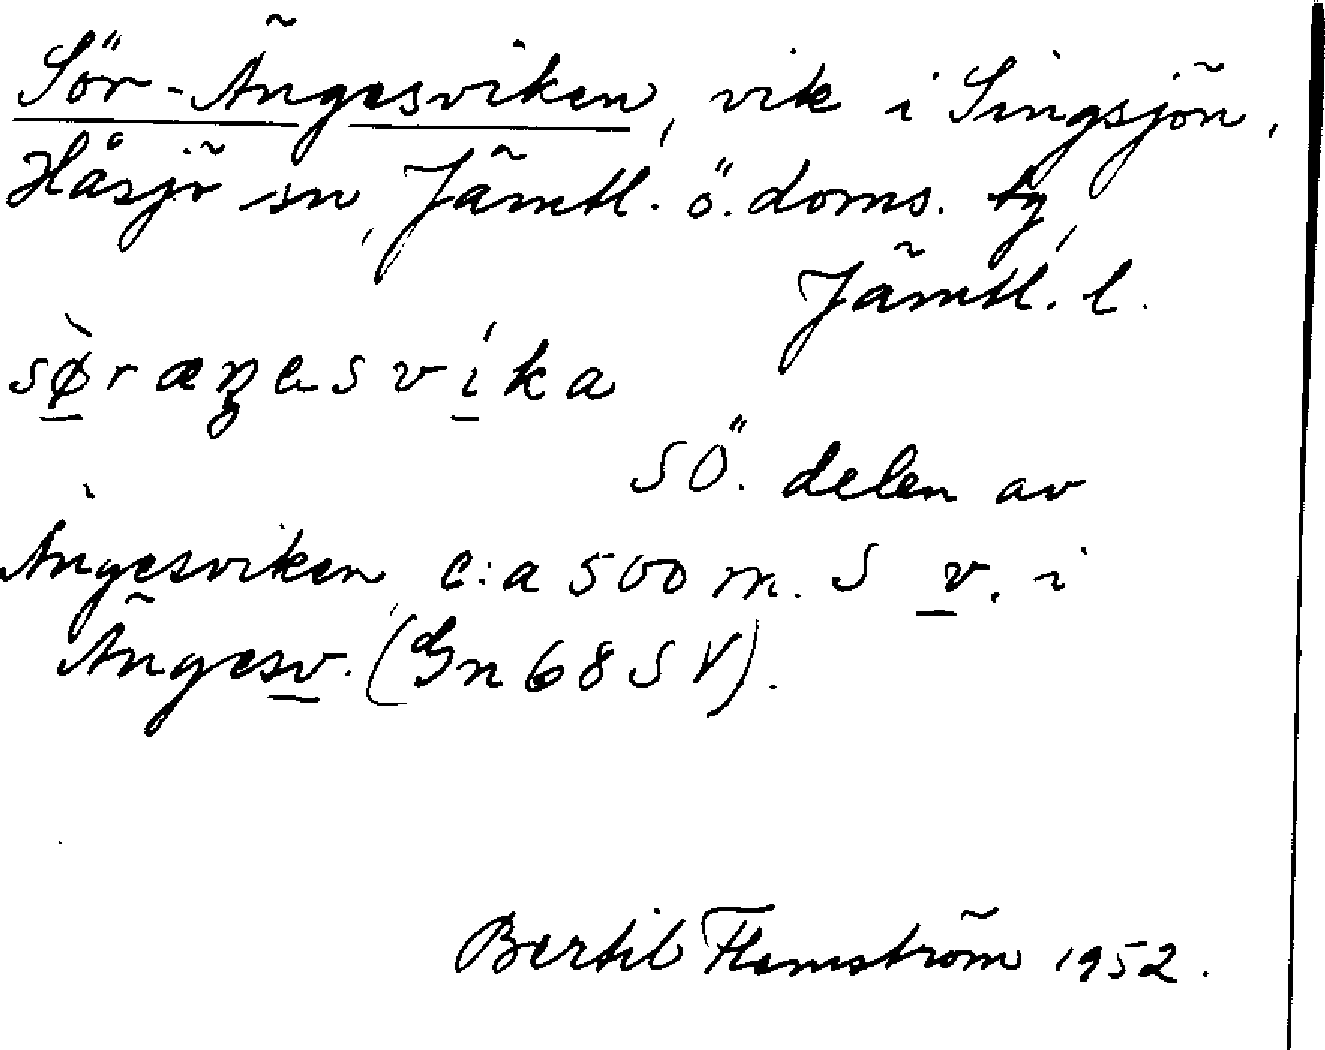 Sör-Ängesviken, vik i Singsjön,
Håsjö sn, Jämtl. ö. doms. tg,
Jämtl. l.
sø̀ræŋesvíka
SÖ. delen av
Ängesviken, c:a 500 m. S v. i
Ängesv. (Gn 68 SV).
Bertil Flemström 1952.